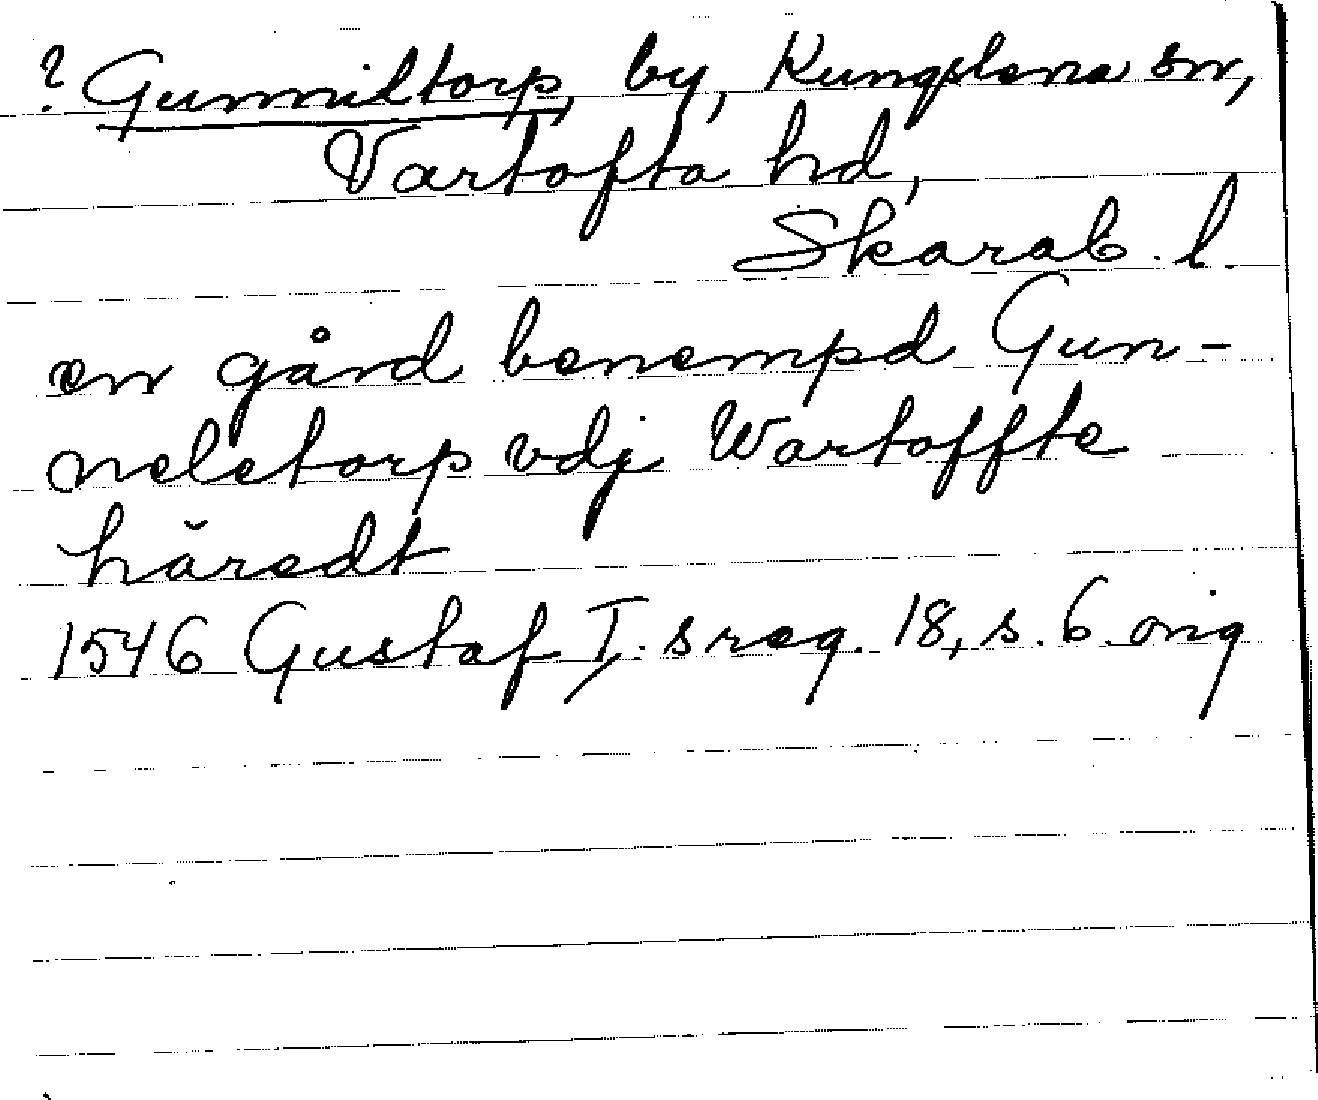 ? Gunniltorp, by, Kungslena sn,
Vartofta hd,
Skarab. l.
en gård benempd Gun-
neletorp vdj Wartoffte
häredt
1546 Gustaf I. s reg. 18, s. 6. orig